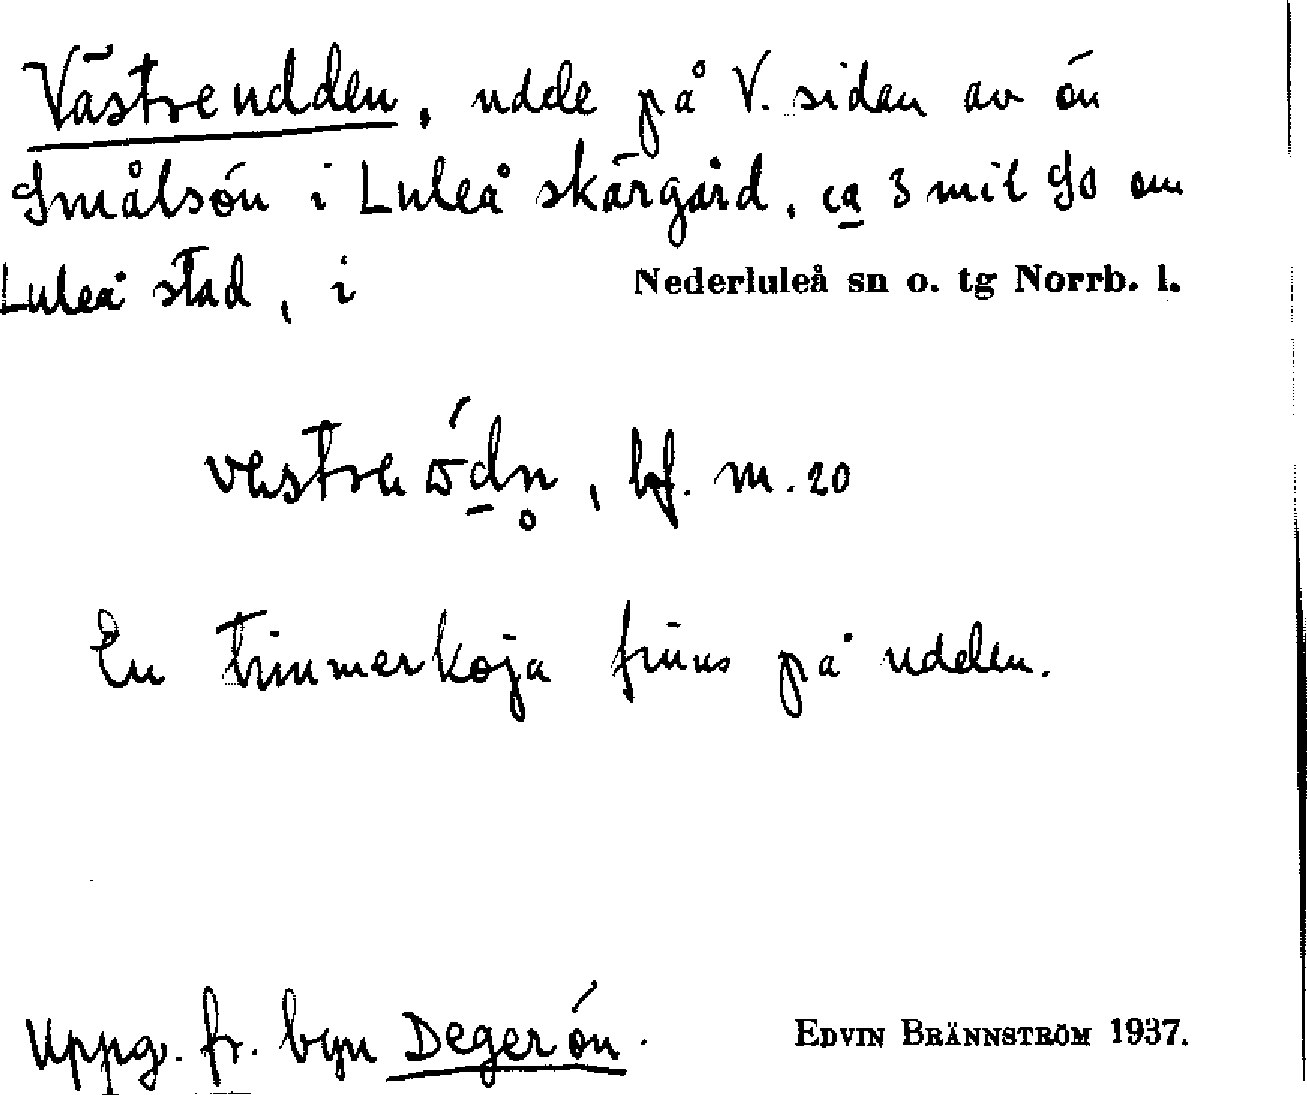 Västreudden, udde på V. sidan av ön
Smålsön i Luleå skärgård, ca 3 mil SO om
Luleå stad, i Nederluleå sn o. tg Norrb. l.
En timmerkoja finns på udden.
Uppg. fr. byn Degerön.
EDVIN BRÄNNSTRÖM 1937.